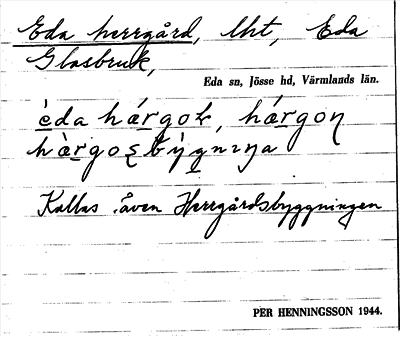 Eda herrgård, lht, Eda
Glasbruk,
Eda sn, Jösse hd, Värmlands län.
èda hárgok, hárgoṇ
hàrgosbỳgnıŋa
Kallas även Herrgårdsbyggningen
PER HENNINGSSON 1944.